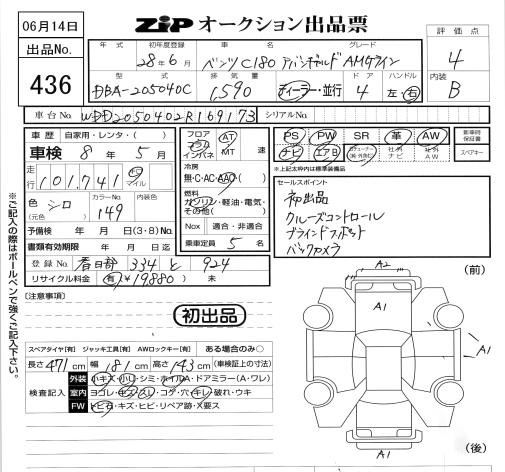 06月14日
ZIP オークション出品票
評価点
4
内装
B
出品No.
436
年式 初年度登録 車名 グレード
28年6月 ベンツC180 アバンギャルド AMGライン
型式 排気量 ドア ハンドル
DBA-205040C 1,590 ディーラー・並行 4 左・右
車台No. WDD2050402R169173 シリアルNo.
車歴 自家用・レンタ・( )
車検 8年5月
走行 101,741 km マイル
色 シロ (元色) カラーNo. 149 内装色
予備検 年 月 日(3・8)No.
書類有効期限 年 月 日迄
登録No. 春日部 334 と 924
リサイクル料金 有 ¥19880 未
フロア コラム インパネ AT MT 速
冷房 無・C・AC・AAC
燃料 ガソリン・軽油・電気・その他( )
Nox 適合・非適合
乗車定員 5 名
PS PW SR 革 AW
ナビ エアB 社外ナビ 社外AW
新車時保証書
スペアキー
※上記太枠内は標準装備品
セールスポイント
初出品
クルーズコントロール
ブラインドスポット
バックカメラ
[注意事項]
初出品
スペアタイヤ[有] ジャッキ工具[有] AWロックキー[有] ある場合のみ○
長さ 471cm 幅 181cm 高さ 143cm (車検証上の寸法)
検査記入
外装 小キズ・小凹・シミ・ホイルA・ドアミラー(A・ワレ)
室内 ヨゴレ・キズ・スレ・コゲ・穴・キレ・破れ・ウキ
FW トビ石・キズ・ヒビ・リペア跡・X要ス
(前)
A2
A1
A1
A1
(後)
※ご記入の際はボールペンで強くご記入下さい。